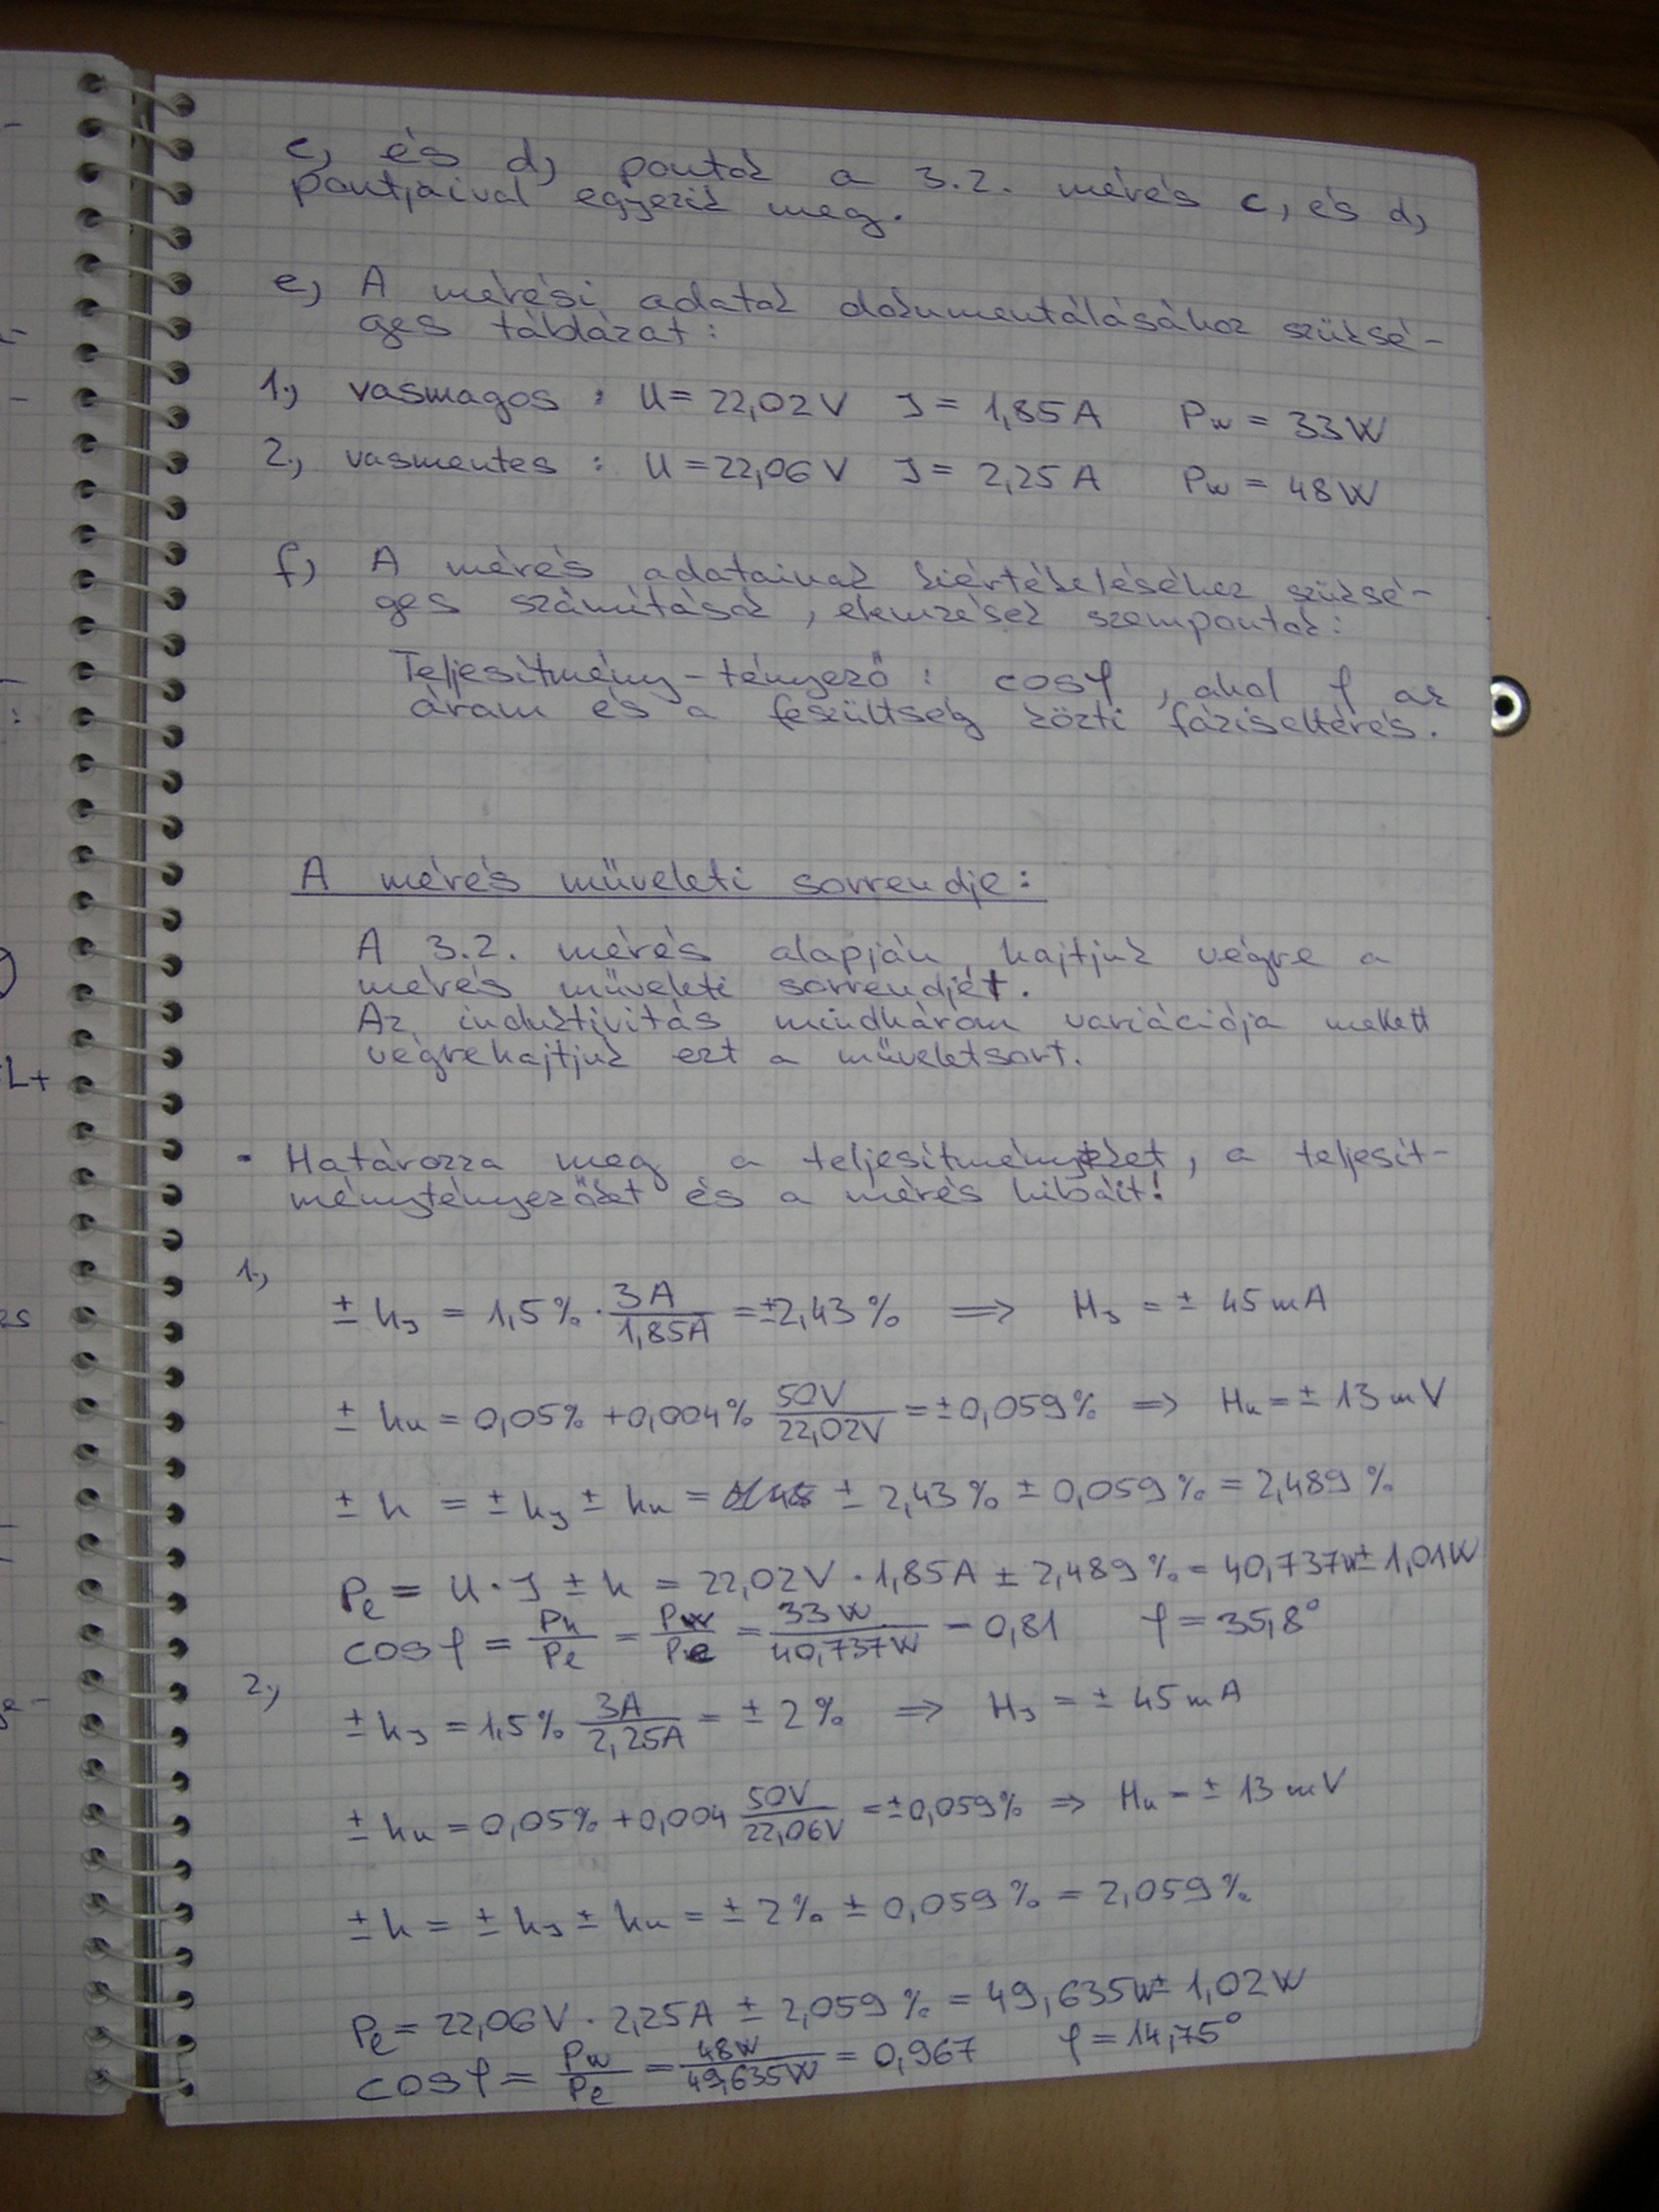 c, és d, pontok a 3.2. mérés c, és d,
pontjaival egyezik meg.
e, A mérési adatok dokumentálásához szüksé-
ges táblázat:
1., vasmagos : U = 22,02 V J = 1,85 A Pw = 33 W
2., vasmentes : U = 22,06 V J = 2,25 A Pw = 48 W
f, A mérés adatainak kiértékeléséhez szüksé-
ges számítások, elemzések szempontok:
Teljesítmény-tényező : cosφ, ahol φ az
áram és a feszültség közti fáziseltérés.
A mérés műveleti sorrendje:
A 3.2. mérés alapján hajtjuk végre a
mérés műveleti sorrendjét.
Az induktivitás mindhárom variációja mellett
végrehajtjuk ezt a műveletsort.
• Határozza meg a teljesítményeket, a teljesít-
ménytényezőket és a mérés hibáit!
1.,
± hJ = 1,5% · 3A / 1,85A = ±2,43% ⇒ HJ = ± 45 mA
± hu = 0,05% + 0,004% 50V / 22,02V = ±0,059% ⇒ Hu = ± 13 mV
± h = ± hJ ± hu = ± 2,43% ± 0,059% = 2,489%
Pe = U · J ± h = 22,02V · 1,85A ± 2,489% = 40,737W ± 1,01W
cosφ = Ph / Pe = Pw / Pe = 33W / 40,737W = 0,81 φ = 35,8°
2.,
± hJ = 1,5% 3A / 2,25A = ± 2% ⇒ HJ = ± 45 mA
± hu = 0,05% + 0,004 50V / 22,06V = ±0,059% ⇒ Hu = ± 13 mV
± h = ± hJ ± hu = ± 2% ± 0,059% = 2,059%
Pe = 22,06V · 2,25A ± 2,059% = 49,635W ± 1,02W
cosφ = Pw / Pe = 48W / 49,635W = 0,967 φ = 14,75°